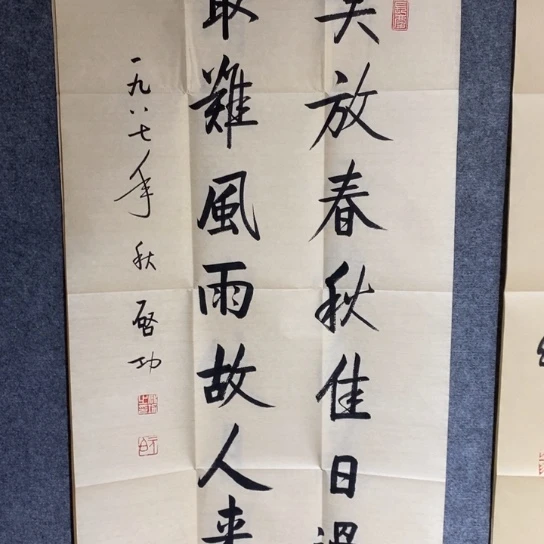 莫放春秋佳日過
最難風雨故人来
一九八七年秋 啓功